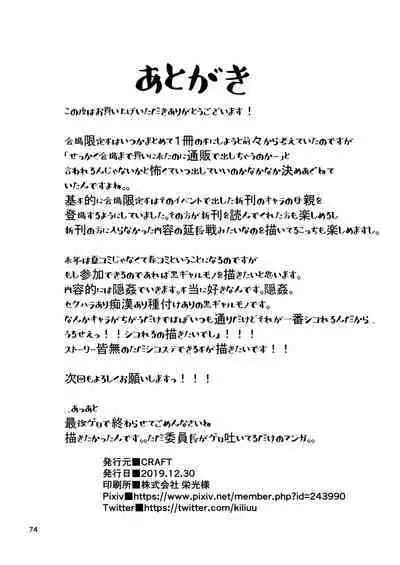 あとがき
この度はお買い上げいただきありがとうございます！
会場限定本はいつかまとめて1冊の本にしようと前々から考えていたのですが
「せっかく会場まで買いに来たのに通販で出しちゃうのかー」と
言われるんじゃないかと怖くていつ出していいのかなかなか決めあぐねて
いたんですよね。。
基本的に会場限定本はそのイベントで出した新刊のキャラの母親を
登場するようにしていました。その方が新刊を読んでくれた方も楽しめるし
新刊の方に入らなかった内容の延長戦みたいなのを描いてるこっちも楽しめますし。
来年は夏コミじゃなくて春コミということになるのですが
もし参加できるのであれば黒ギャルモノを描きたいと思います。
内容的には隠姦でいきます。本当に好きなんです。隠姦。
セクハラあり痴漢あり種付けありの黒ギャルモノです。
なんかキャラがちがうだけでほぼいつも通りだけどそれが一番シコれるんだから
うるせえっ！！シコれるの描きたいでし！！！
ストーリー皆無のただシコステできる本が描きたいです！！
次回もよろしくお願いしますっ！！！
..あっあと
最後ゲロで終わらせてごめんなさいね
描きたかったんです。。ただ委員長がゲロ吐いてるだけのマンガ。。
発行元■CRAFT
発行日■2019.12.30
印刷所■株式会社 栄光様
Pixiv■https://www.pixiv.net/member.php?id=243990
Twitter■https://twitter.com/kiliuu
74